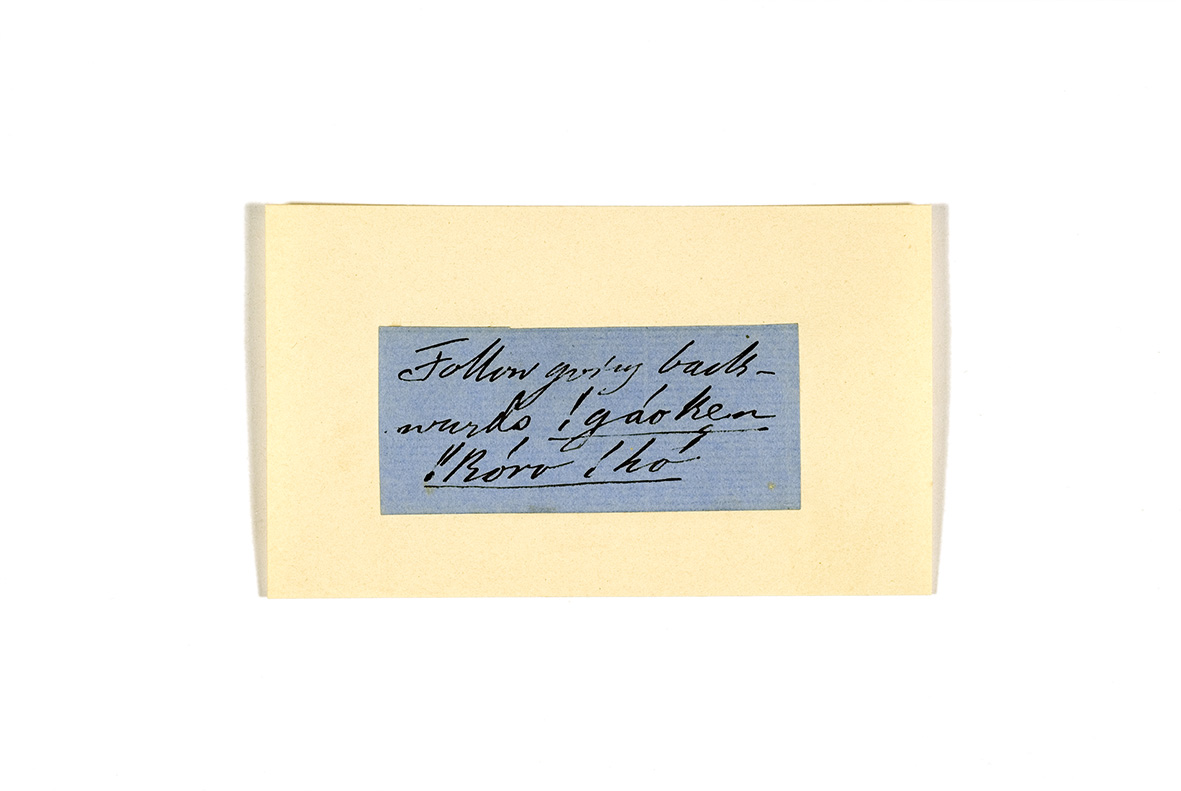 Follow going back-
wards !gáoken
!!kóro !hó